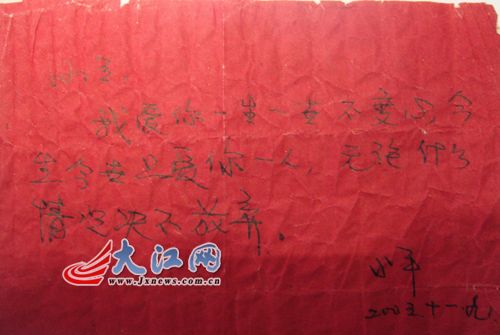 我爱你一生一世不变心,今
生今世只爱你一人,无论什么
情况决不放弃.
小平
2005十一.九
大江网
www.jxnews.com.cn